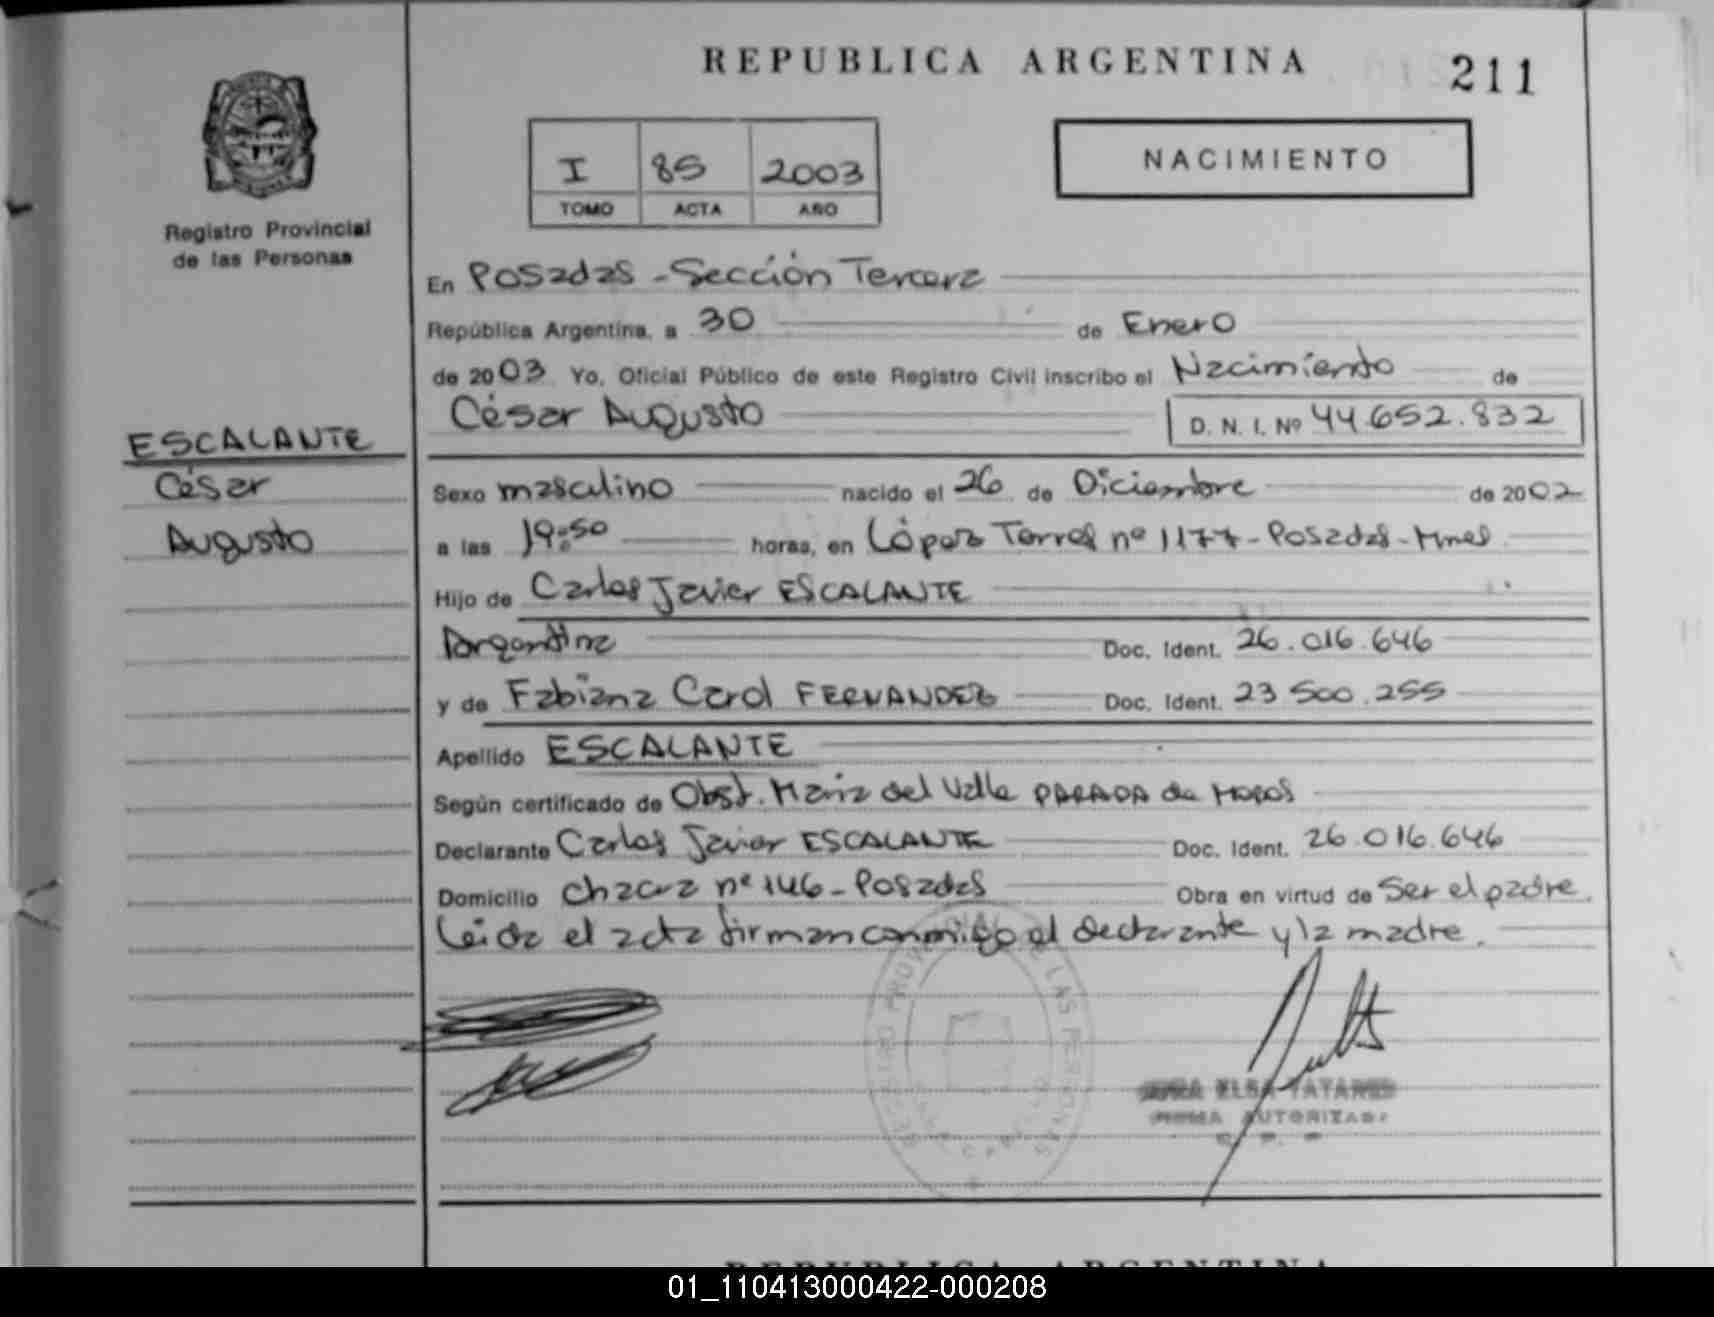 REPUBLICA ARGENTINA
211
I 85 2003
TOMO ACTA AÑO
NACIMIENTO
Registro Provincial
de las Personas
En Posadas - Sección Tercera
República Argentina, a 30 de Enero
de 2003 Yo, Oficial Público de este Registro Civil inscribo el Nacimiento de
César Augusto D. N. I. Nº 44.652.832
ESCALANTE
César
Augusto
Sexo masculino nacido el 26 de Diciembre de 2002
a las 19:50 horas, en López Torres nº 1177 - Posadas - Mnes
Hijo de Carlos Javier ESCALANTE
Argentina Doc. Ident. 26.016.646
y de Fabiana Carol FERNANDEZ Doc. Ident. 23 500.255
Apellido ESCALANTE
Según certificado de Obst. Maria del Valle PARADA de MOROS
Declarante Carlos Javier ESCALANTE Doc. Ident. 26.016.646
Domicilio Chacra nº 146 - Posadas Obra en virtud de Ser el padre.
Leida el acta firman conmigo el declarante y la madre.
REGISTRO PROVINCIAL DE LAS PERSONAS
ELSA TATARES
FIRMA AUTORIZADA
REPUBLICA ARGENTINA
01_110413000422-000208